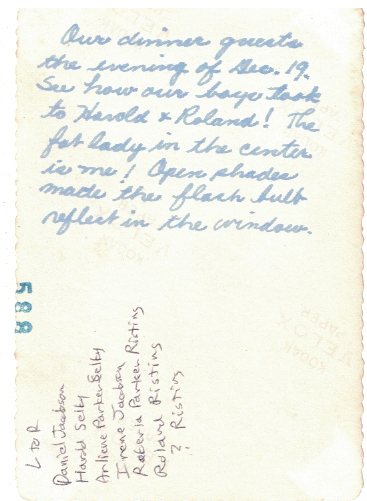 Our dinner guests
the evening of Dec. 19.
See how our boys took
to Harold & Roland! The
fat lady in the center
is me! Open shades
made the flash bulb
reflect in the window.
588
L to R
Daniel Jacobson
Harold Selby
Arliene Parker Selby
Irene Jacobson
Roberta Parker Risting
Roland Risting
? Risting
KODAK
VELOX
PAPER